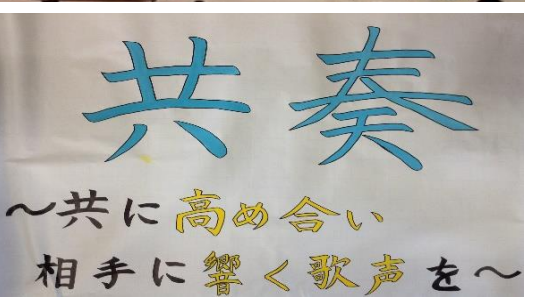 共奏
～共に高め合い
相手に響く歌声を～